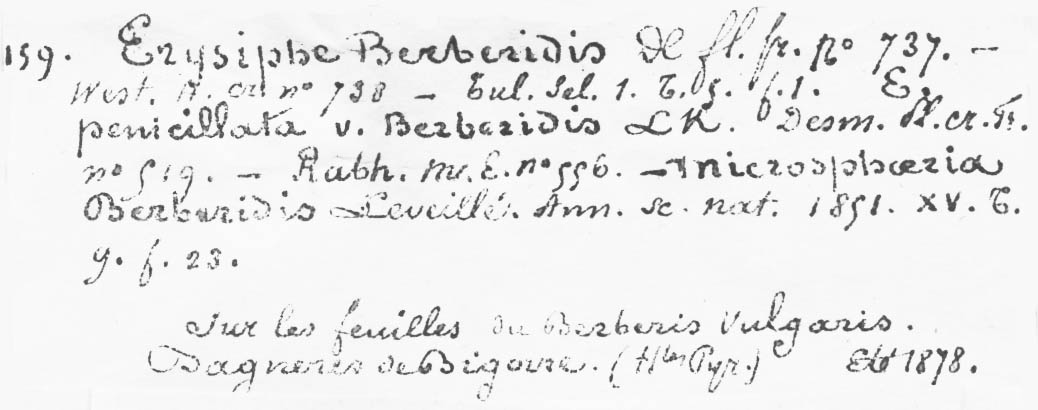 159. Erysiphe Berberidis DC fl. fr. no 737. –
West. H. cr. no 738 – Tul. Sel. 1. T. 5. f. 1. E.
penicillata v. Berberidis LK. Desm. Pl. cr. Fr.
no 519. – Rabh. M. E. no 556. – Microsphœria
Berberidis Leveillé. Ann. sc. nat. 1851. XV. T.
9. f. 23.
sur les feuilles du Berberis Vulgaris.
Bagneres de Bigorre. (Htes Pyr.) Eté 1878.